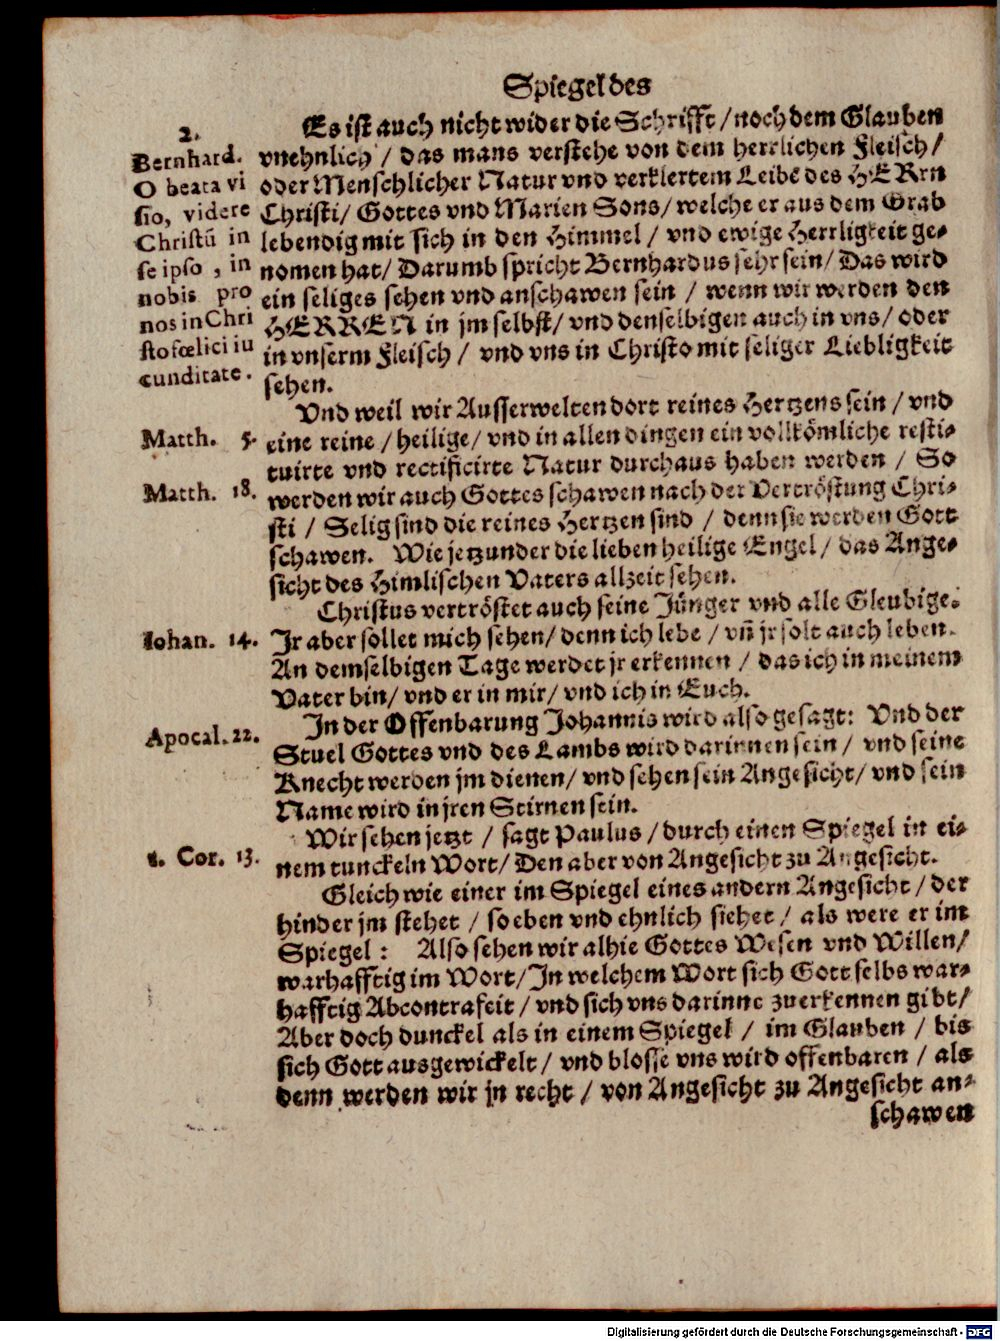 Spiegel des
2.
Bernhard.
O beata vi
sio, videre
Christū in
se ipso, in
nobis pro
nos in Chri
sto fœlici iu
cunditate.
Es ist auch nicht wider die Schrifft / noch dem Glauben
vnehnlich / das mans verstehe von dem herrlichen Fleisch /
oder Menschlicher Natur vnd verklertem Leibe des HERrn
Christi / Gottes vnd Marien Sons / welche er aus dem Grab
lebendig mit sich in den Himmel / vnd ewige Herrligkeit ge-
nomen hat / Darumb spricht Bernhardus sehr fein / Das wird
ein seliges sehen vnd anschawen sein / wenn wir werden den
HERREN in jm selbst / vnd denselbigen auch in vns / oder
in vnserm Fleisch / vnd vns in Christo mit seliger Liebligkeit
sehen.
Vnd weil wir Ausserwelten dort reines Hertzens sein / vnd
Matth. 5.
eine reine / heilige / vnd in allen dingen ein vollkömliche resti-
tuirte vnd rectificirte Natur durchaus haben werden / So
Matth. 18.
werden wir auch Gottes schawen nach der Vertröstung Chri-
sti / Selig sind die reines Hertzen sind / denn sie werden Gott
schawen. Wie jetzunder die lieben heilige Engel / das Ange-
sicht des Himlischen Vaters allzeit sehen.
Christus vertröstet auch seine Jünger vnd alle Gleubige.
Iohan. 14.
Jr aber sollet mich sehen / denn ich lebe / vn̄ jr solt auch leben.
An demselbigen Tage werdet jr erkennen / das ich in meinem
Vater bin / vnd er in mir / vnd ich in Euch.
Apocal. 22.
In der Offenbarung Johannis wird also gesagt: Vnd der
Stuel Gottes vnd des Lambs wird darinnen sein / vnd seine
Knecht werden jm dienen / vnd sehen sein Angesicht / vnd sein
Name wird in jren Stirnen sein.
Wir sehen jetzt / sagt Paulus / durch einen Spiegel in ei-
1. Cor. 13.
nem tunckeln Wort / Den aber von Angesicht zu Angesicht.
Gleich wie einer im Spiegel eines andern Angesicht / der
hinder jm stehet / so eben vnd ehnlich siehet / als were er im
Spiegel: Also sehen wir alhie Gottes Wesen vnd Willen /
warhafftig im Wort / In welchem Wort sich Gott selbs war-
hafftig Abcontrafeit / vnd sich vns darinne zuerkennen gibt /
Aber doch dunckel als in einem Spiegel / im Glauben / bis
sich Gott ausgewickelt / vnd blosse vns wird offenbaren / als
denn werden wir jn recht / von Angesicht zu Angesicht an-
schawen
Digitalisierung gefördert durch die Deutsche Forschungsgemeinschaft - DFG